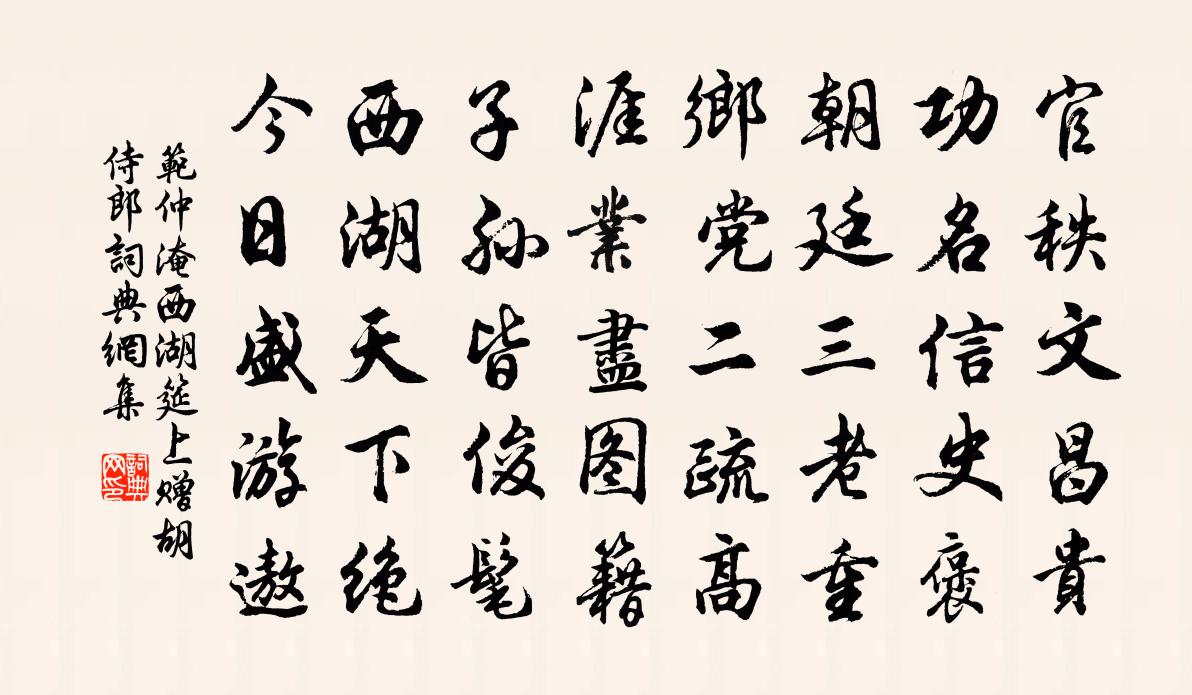 官秩文昌貴
功名信史褒
朝廷三老重
鄉党二疏高
涯業盡图籍
子孙皆俊髦
西湖天下绝
今日盛游遨
範仲淹西湖筵上赠胡
侍郎詞典網集
詞典
网印